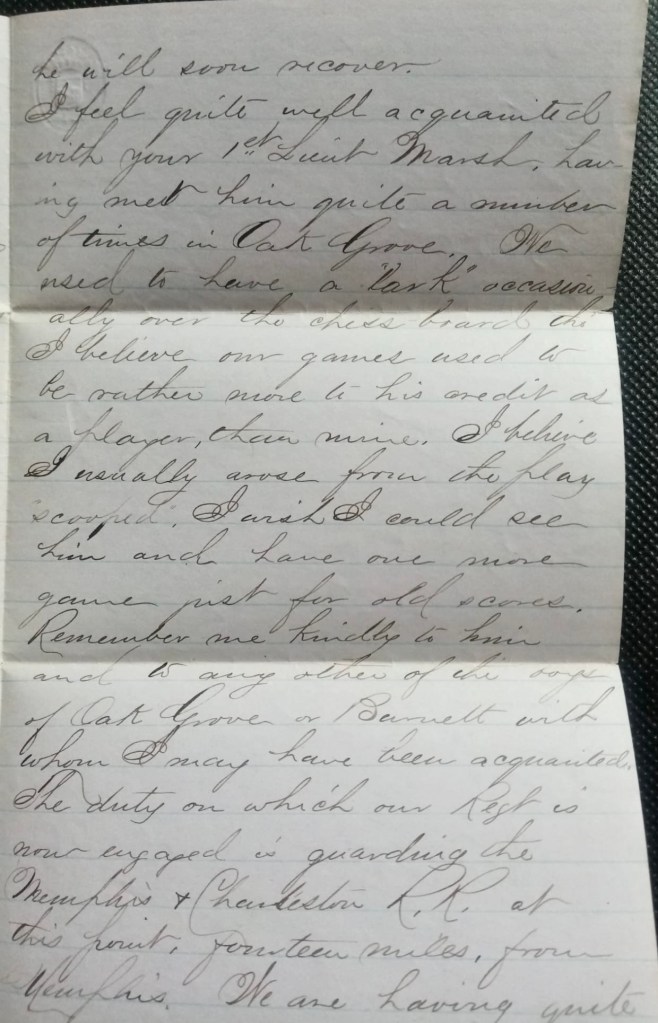 he will soon recover.
I feel quite well acquanited
with your 1st Lieut Marsh, hav-
ing met him quite a number
of times in Oak Grove. We
used to have a "lark" occasion-
ally over the chess board tho'
I believe our games used to
be rather more to his credit as
a player, than mine. I believe
I usually arose from the play
"scooped". I wish I could see
him and have one more
game just for old scores.
Remember me kindly to him
and to any other of the boys
of Oak Grove or Burnett with
whom I may have been acquanited.
The duty on which our Regt is
now engaged is guarding the
Memphis & Charleston R.R. at
this point, fourteen miles, from
Memphis. We are having quite